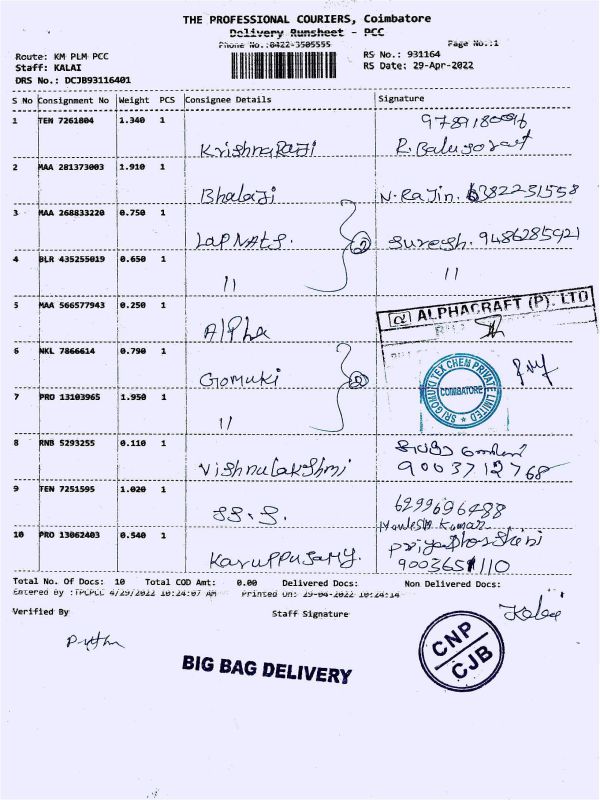 THE PROFESSIONAL COURIERS, Coimbatore
Delivery Runsheet - PCC
Phone No.:0422-3505555
Page No.:1
Route: KM PLM PCC
RS No.: 931164
Staff: KALAI
RS Date: 29-Apr-2022
DRS No.: DCJB93116401
S No Consignment No Weight PCS Consignee Details Signature
1 TEN 7261804 1.340 1
KrishnaRaji
2 MAA 281373003 1.910 1
Bhalaji N.Rajin. 6382251558
3 MAA 268833220 0.750 1
Suresh. 9486285921
4 BLR 435255019 0.650 1
11 11
5 MAA 566577943 0.250 1
ALPHACRAFT (P). LTD
Alpha
6 NKL 7866614 0.790 1
Gomuki
SRI GOMUKI TEX CHEM PRIVATE LIMITED
COIMBATORE
7 PRO 13103965 1.950 1
11
8 RNB 5293255 0.110 1
Vishnulakshmi 9003712768
9 TEN 7251595 1.020 1
6299696488
Kumar
10 PRO 13062403 0.540 1
Karuppusamy.
Total No. Of Docs: 10 Total COD Amt: 0.00 Delivered Docs: Non Delivered Docs:
Entered By :TPCPCC 4/29/2022 10:24:07 AM Printed On: 29-04-2022 10:24:14
Verified By Staff Signature
Kalai
BIG BAG DELIVERY
CNP
CJB